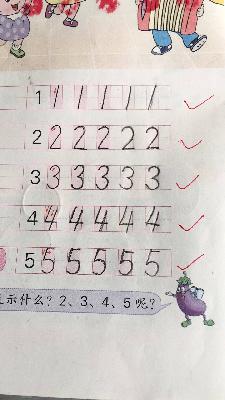 1 1 1 1 1 1
2 2 2 2 2 2
3 3 3 3 3 3
4 4 4 4 4 4
5 5 5 5 5 5
示什么？2、3、4、5 呢？